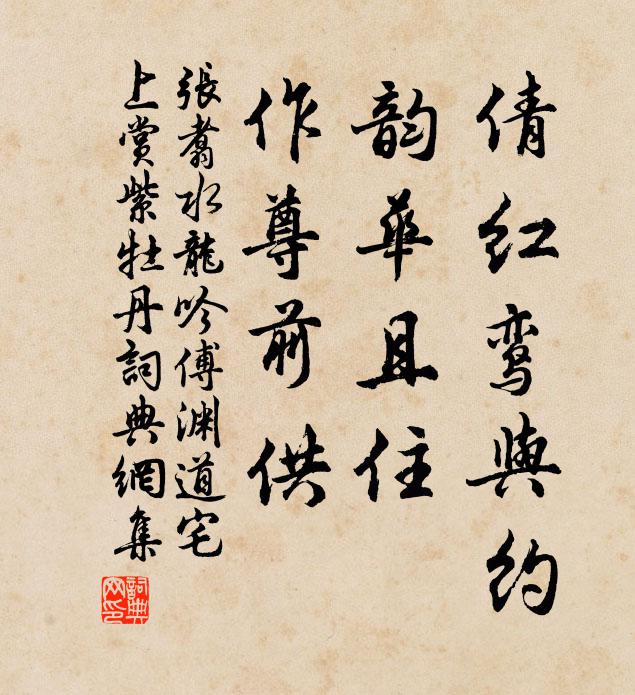 倩红鸾與约
韵華且住
作尊前供
張翥水龍吟傅渊道宅
上赏紫牡丹詞典網集
詞典
网印